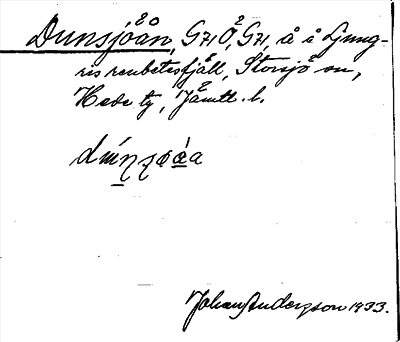 Dunsjöån, G71Ö, G71, å i Ljung-
ris renbetesfjäll, Storsjö sn,
Hede tg, Jämtl. l.
Johan Anderzson 1933.